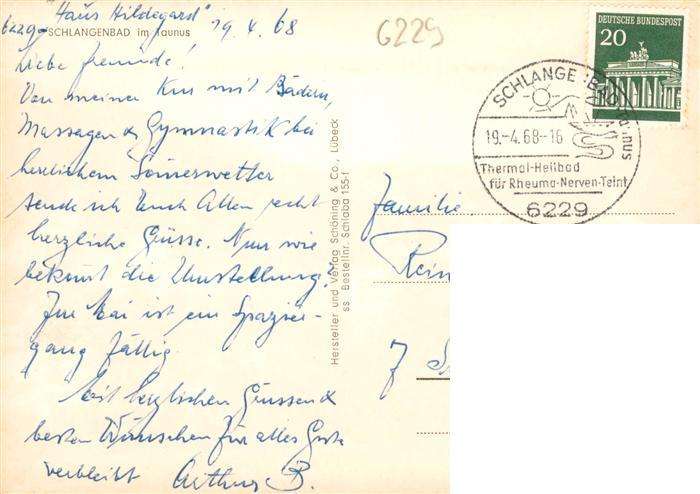 "Haus Hildegard" 19.4.68
6229 SCHLANGENBAD im Taunus
Liebe Freunde!
Von meiner Kur mit Bädern,
Massagen & Gymnastik bei
herrlichem Sonnenwetter
sende ich Euch Allen recht
herzliche Grüsse. Nun wie
bekomt die Umstellung?
Im Mai ist ein Spazier-
gang fällig.
Mit herzlichen Grüssen &
besten Wünschen für alles Gute
verbleibt Arthur B.
Hersteller und Verlag Schöning & Co., Lübeck
ss Bestellnr. Schlaba 155-f
6229
DEUTSCHE BUNDESPOST
20
SCHLANGENBAD
Taunus
19.-4.68-16
Thermal-Heilbad
für Rheuma-Nerven-Teint
6229
Familie
Rein
7